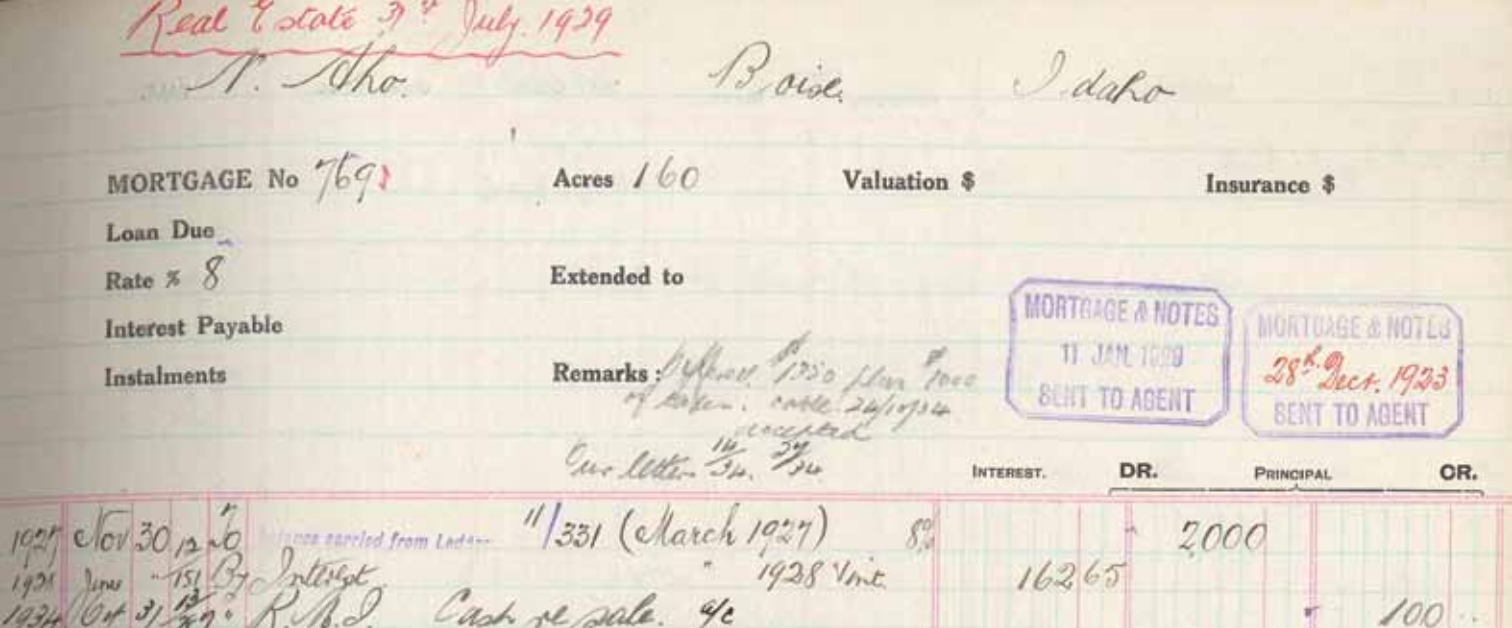 Real Estate 3rd July. 1929
N. Aho. Boise, Idaho
MORTGAGE No 769 Acres 160 Valuation $ Insurance $
Loan Due
Rate % 8 Extended to
Interest Payable
Instalments Remarks: $1350 $1000
cable 24/10/34
accepted
Our letter
MORTGAGE & NOTES
11 JAN.
SENT TO AGENT
MORTGAGE & NOTES
28th Decr. 1923
SENT TO AGENT
INTEREST. DR. PRINCIPAL CR.
1927 Nov 30 Balance carried from Ledger 11/331 (March 1927) 8% 2000
1928 June By Interest " 1928 162 65
1934 Oct 31 Cash re sale. a/c 100